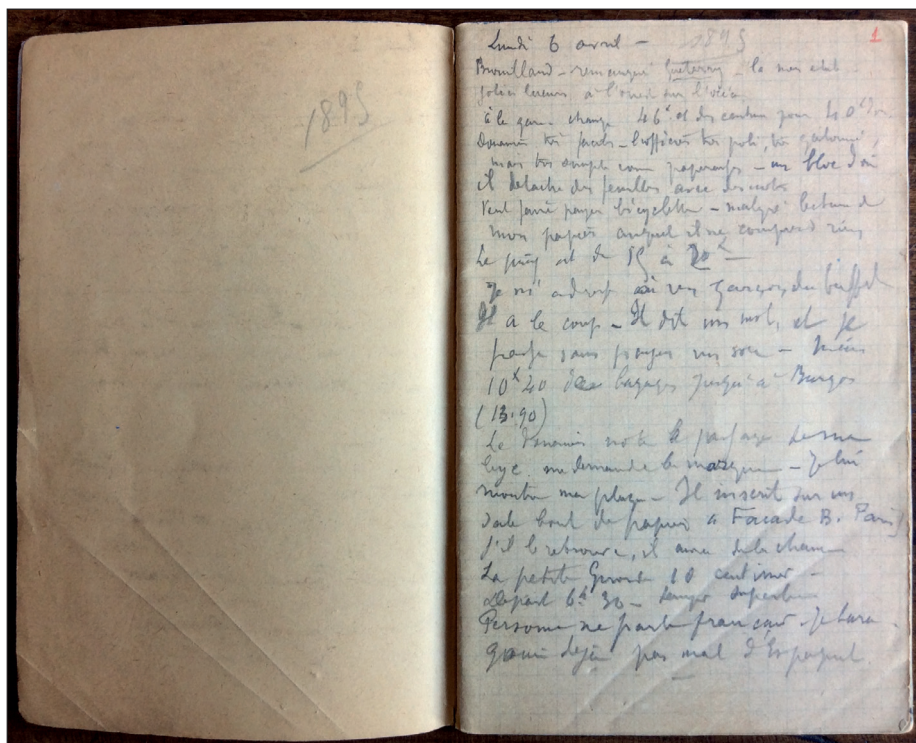 1895
Lundi 6 avril – 1895
1
Brouillard – remarqué Guétarry – la mer était
jolies lueurs à l'ouest sur l'océan
à la gare change 46 et des centimes pour 40
Douanier très facile – L'officier très poli, très galonné,
mais très simple comme paperasses – un bloc d'où
il détache des feuilles avec des mots
Veut faire payer bicyclette – malgré lecture de
mon papier auquel il ne comprend rien
Le prix est de 15 à 20
Je m'adresse à un garçon du buffet
Il a le coup – Il dit un mot, et je
passe sans payer un sou –
10 40 de bagages jusqu'à Burgos
(13.90)
Le douanier note le passage de ma
byc. me demande la marque – Je lui
montre ma plaque – Il inscrit sur un
sale bout de papier à Facade B. Paris
S'il le retrouve, il aura de la chance
La petite Gironde 10 centimes –
Départ 6h 30 – temps superbe
Personne ne parle français – Je bara-
gouine déjà pas mal d'Espagnol.